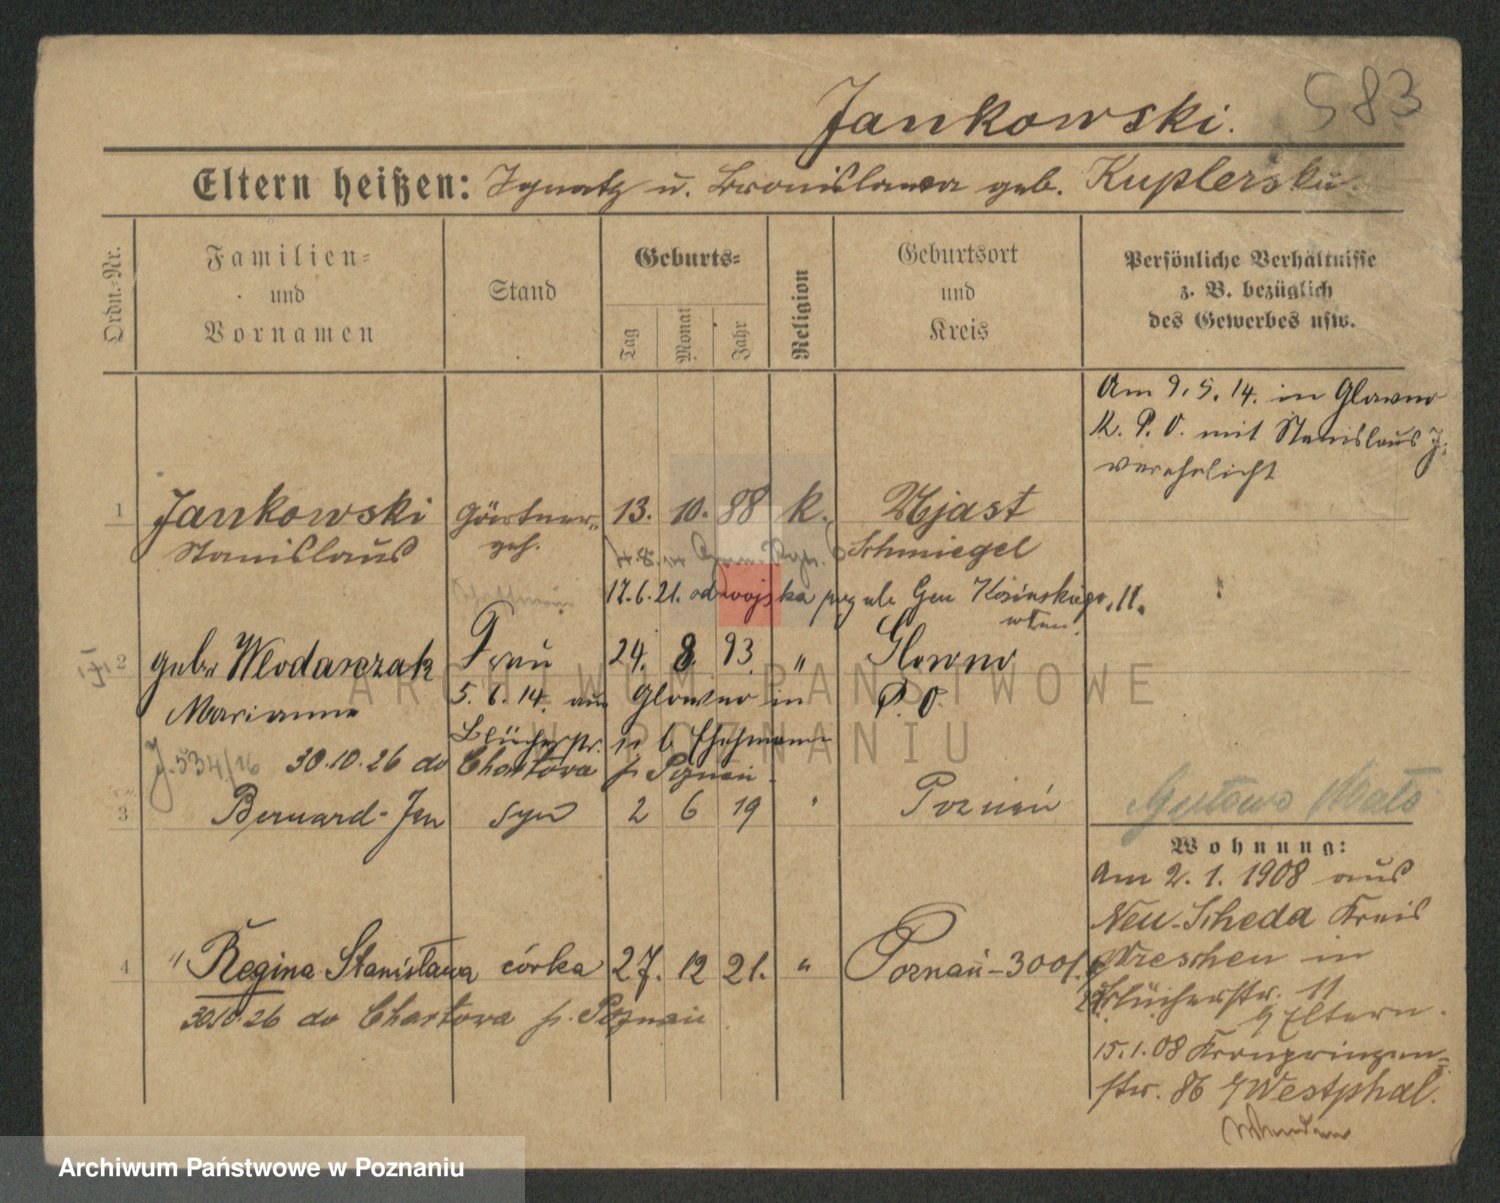 583
Jankowski.
Eltern heißen: Ignatz u. Bronislawa geb. Kuplerska.
Ordn.-Nr.
Familien-
und
Vornamen
Stand
Geburts-
Tag
Monat
Jahr
Religion
Geburtsort
und
Kreis
Persönliche Verhältnisse
z. B. bezüglich
des Gewerbes usw.
Am 9. 5. 14. in Glowno
K. P. O. mit Stanislaus J.
verehelicht
1 Jankowski Gärtner- 13. 10. 88 k. Ujast
Stanislaus geh. Schmiegel
17.6.21. od wojska ul. Gen Kosińskiego, 11.
2 geb. Wlodarczak Frau 24. 8. 93. " Glowno
Marianna 5. 6. 14. aus Glowno in P. O.
Blücherstr. 11 b. Ehemann
J. 534/16 30.10.26 do Chartowa p. Poznań.
3 Bernard-Jan syn 2 6 19 " Poznań
Wohnung:
Am 2. 1. 1908 aus
Neu-Scheda Kreis
Wreschen in
Blücherstr. 11
b/ Eltern.
15.1.08 Kronprinzen-
str. 86 b/ Westphal.
4 " Regina Stanisława córka 27. 12 21. " Poznań - 3001.
30.10.26 do Chartowa p. Poznań
ARCHIWUM PAŃSTWOWE
W POZNANIU
Archiwum Państwowe w Poznaniu